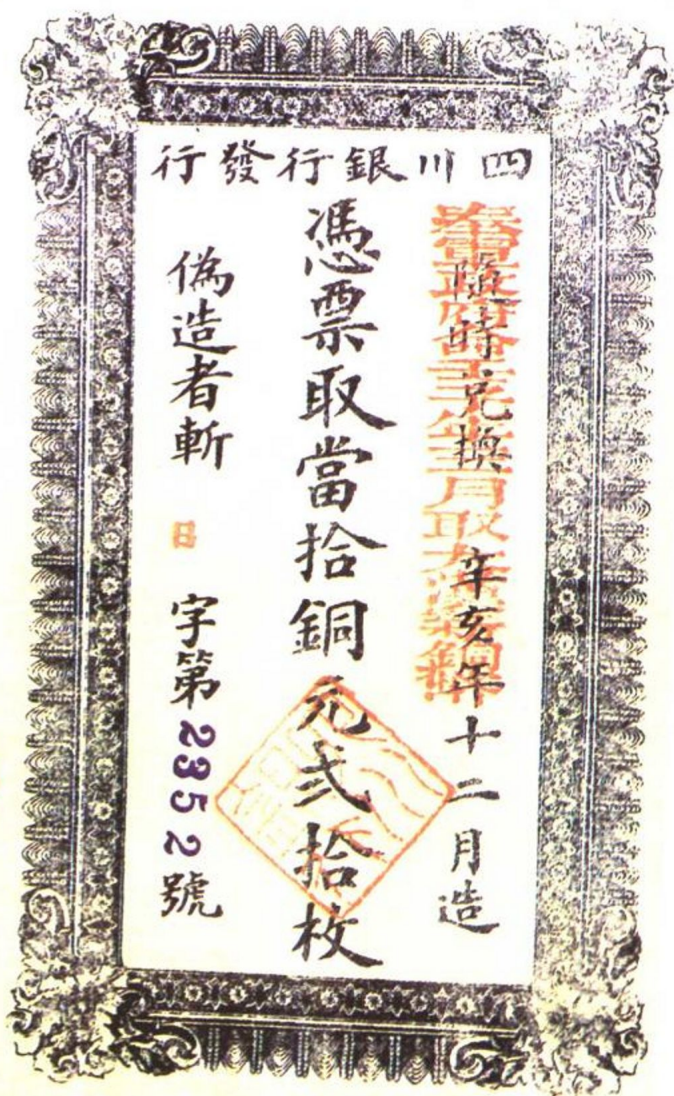 四川銀行發行
隨時兌換 辛亥年十二月造
憑票取當拾銅元弍拾枚
偽造者斬 日 字第2352號